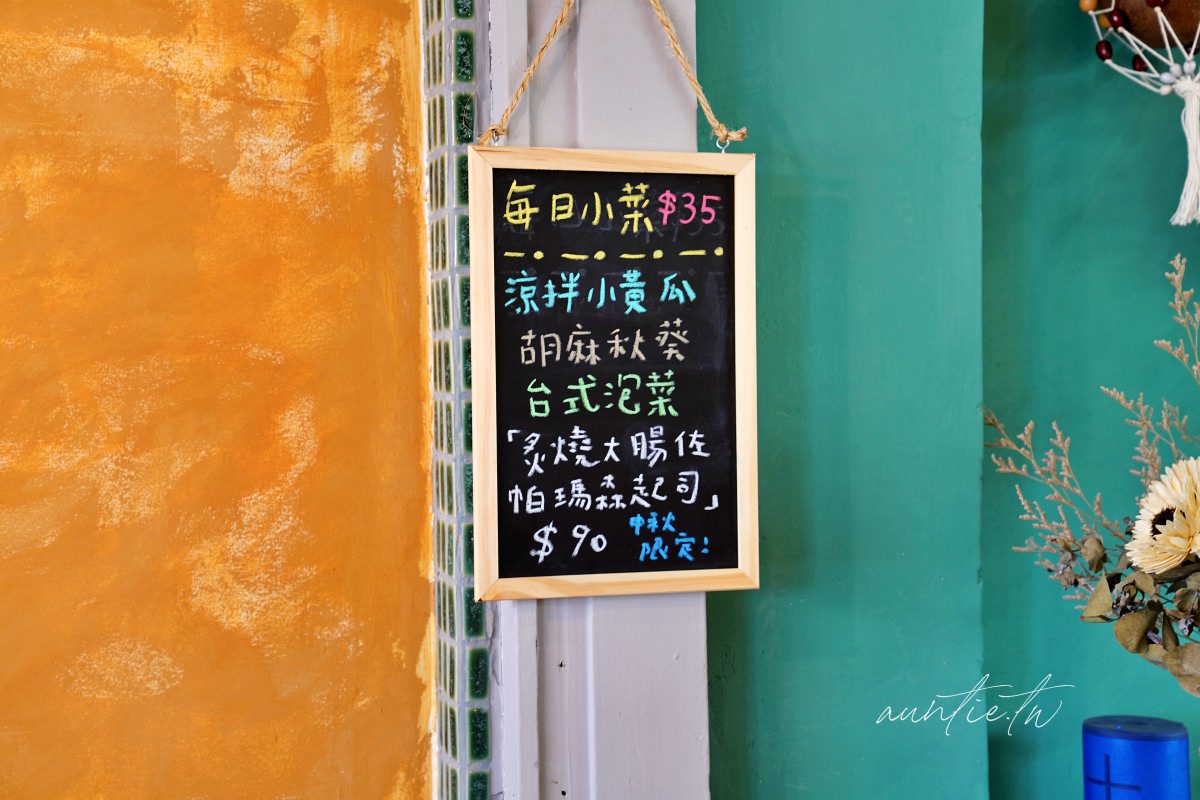 每日小菜$35
涼拌小黃瓜
胡麻秋葵
台式泡菜
「炙燒大腸佐
帕瑪森起司」
$90 中秋
限定!
auntie.tw